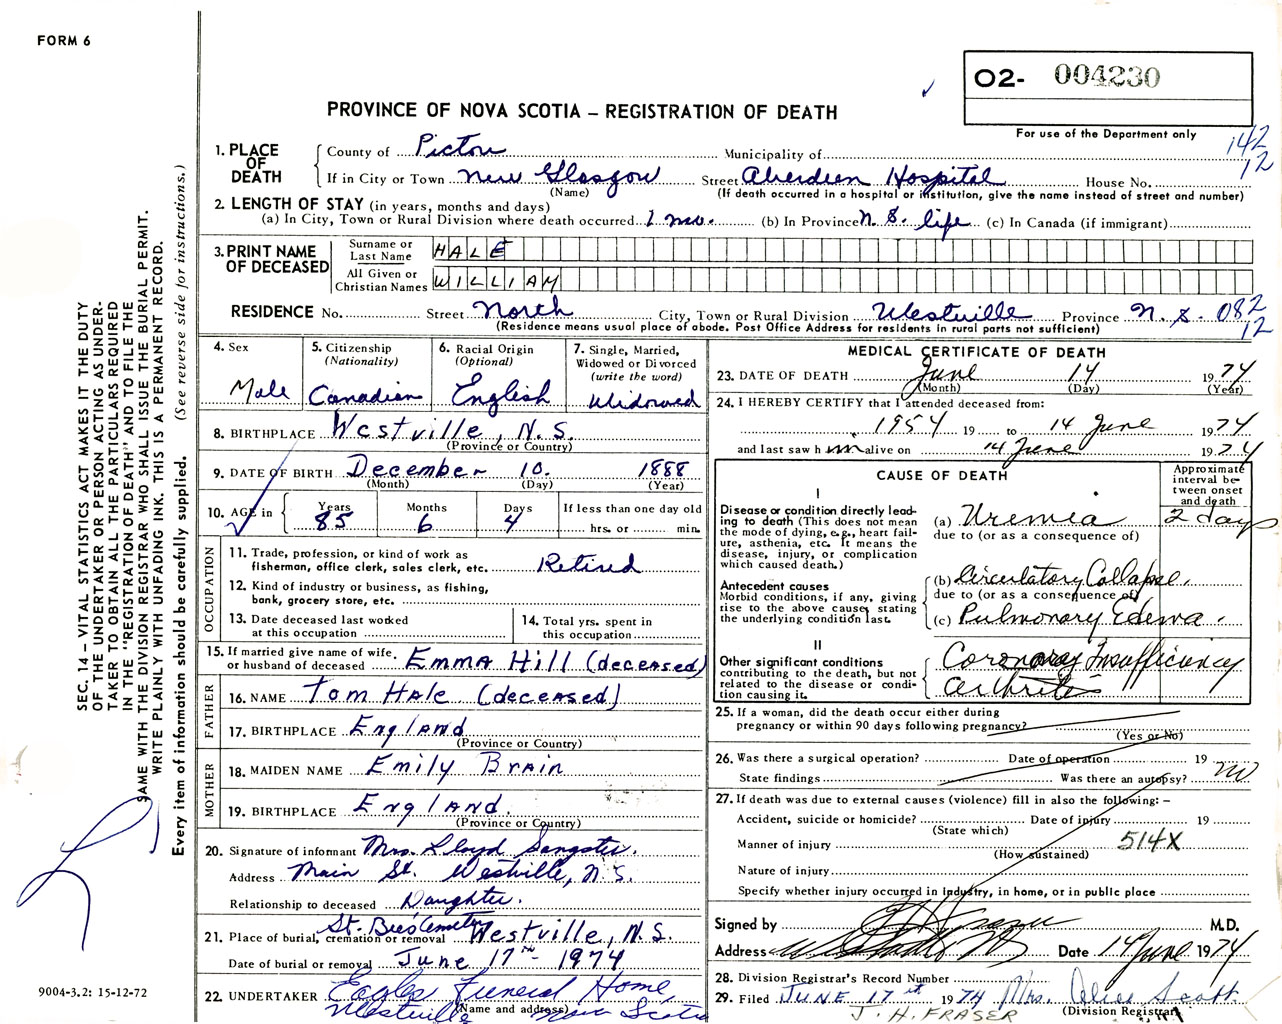 FORM 6
O2- 004230
PROVINCE OF NOVA SCOTIA – REGISTRATION OF DEATH
For use of the Department only
142
12
1. PLACE OF DEATH
County of Pictou Municipality of
If in City or Town New Glasgow Street Aberdeen Hospital House No.
(Name) (If death occurred in a hospital or institution, give the name instead of street and number)
2. LENGTH OF STAY (in years, months and days)
(a) In City, Town or Rural Division where death occurred 1 mo. (b) In Province N.S. life (c) In Canada (if immigrant)
3. PRINT NAME OF DECEASED
Surname or Last Name HALE
All Given or Christian Names WILLIAM
RESIDENCE No. Street North City, Town or Rural Division Westville Province N.S. 082
12
(Residence means usual place of abode. Post Office Address for residents in rural parts not sufficient)
4. Sex Male
5. Citizenship (Nationality) Canadian
6. Racial Origin (Optional) English
7. Single, Married, Widowed or Divorced (write the word) Widowed
8. BIRTHPLACE Westville, N.S.
(Province or Country)
9. DATE OF BIRTH December 10. 1888
(Month) (Day) (Year)
10. AGE in Years 85 Months 6 Days 4 If less than one day old hrs. or min.
OCCUPATION
11. Trade, profession, or kind of work as fisherman, office clerk, sales clerk, etc. Retired
12. Kind of industry or business, as fishing, bank, grocery store, etc.
13. Date deceased last worked at this occupation
14. Total yrs. spent in this occupation
15. If married give name of wife, or husband of deceased Emma Hill (deceased)
FATHER
16. NAME Tom Hale (deceased)
17. BIRTHPLACE England
(Province or Country)
MOTHER
18. MAIDEN NAME Emily Brain
19. BIRTHPLACE England.
(Province or Country)
20. Signature of informant Mrs. Lloyd Sangster.
Address Main St. Westville, N.S.
Relationship to deceased Daughter.
St. Bees Cemetery
21. Place of burial, cremation or removal Westville, N.S.
Date of burial or removal June 17th 1974
22. UNDERTAKER Eagles Funeral Home,
(Name and address) Westville Nova Scotia
MEDICAL CERTIFICATE OF DEATH
23. DATE OF DEATH June 14 1974
(Month) (Day) (Year)
24. I HEREBY CERTIFY that I attended deceased from:
1954 19 to 14 June 1974
and last saw him alive on 14 June 1974
CAUSE OF DEATH
Approximate interval between onset and death
I
Disease or condition directly leading to death (This does not mean the mode of dying, e.g., heart failure, asthenia, etc. It means the disease, injury, or complication which caused death.)
(a) Uremia 2 days
due to (or as a consequence of)
Antecedent causes
Morbid conditions, if any, giving rise to the above cause, stating the underlying condition last.
(b) Circulatory Collapse.
due to (or as a consequence of)
(c) Pulmonary Edema.
II
Other significant conditions contributing to the death, but not related to the disease or condition causing it.
Coronary Insufficiency
Arthritis
25. If a woman, did the death occur either during pregnancy or within 90 days following pregnancy?
(Yes or No)
26. Was there a surgical operation? Date of operation 19
State findings Was there an autopsy? No
27. If death was due to external causes (violence) fill in also the following: –
Accident, suicide or homicide? Date of injury 19
(State which)
Manner of injury 514X
(How sustained)
Nature of injury
Specify whether injury occurred in industry, in home, or in public place
Signed by M.D.
Address Date 14 June 1974
28. Division Registrar's Record Number
29. Filed JUNE 17th 1974 Mrs. Alice Scott
(Division Registrar)
J. H. FRASER
SEC. 14 – VITAL STATISTICS ACT MAKES IT THE DUTY
OF THE UNDERTAKER OR PERSON ACTING AS UNDER-
TAKER TO OBTAIN ALL THE PARTICULARS REQUIRED
IN THE "REGISTRATION OF DEATH" AND TO FILE THE
SAME WITH THE DIVISION REGISTRAR WHO SHALL ISSUE THE BURIAL PERMIT.
WRITE PLAINLY WITH UNFADING INK. THIS IS A PERMANENT RECORD.
Every item of information should be carefully supplied. (See reverse side for instructions.)
9004-3.2: 15-12-72